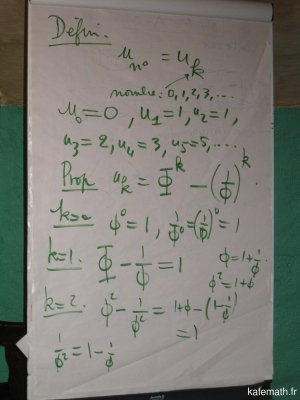 Défin.
u_n° = u_k
nombre: 0, 1, 2, 3, ...
u_0 = 0, u_1 = 1, u_2 = 1,
u_3 = 2, u_4 = 3, u_5 = 5, ....
Prop u_k = Φ^k - (1/Φ)^k.
k=0 ϕ^0 = 1, 1/ϕ^0 = (1/ϕ)^0 = 1
k=1. Φ - 1/Φ = 1 ϕ = 1 + 1/ϕ
ϕ^2 = 1 + ϕ
k=2. ϕ^2 - 1/ϕ^2 = 1 + ϕ - (1 - 1/ϕ)
= 1
1/ϕ^2 = 1 - 1/ϕ
kafemath.fr